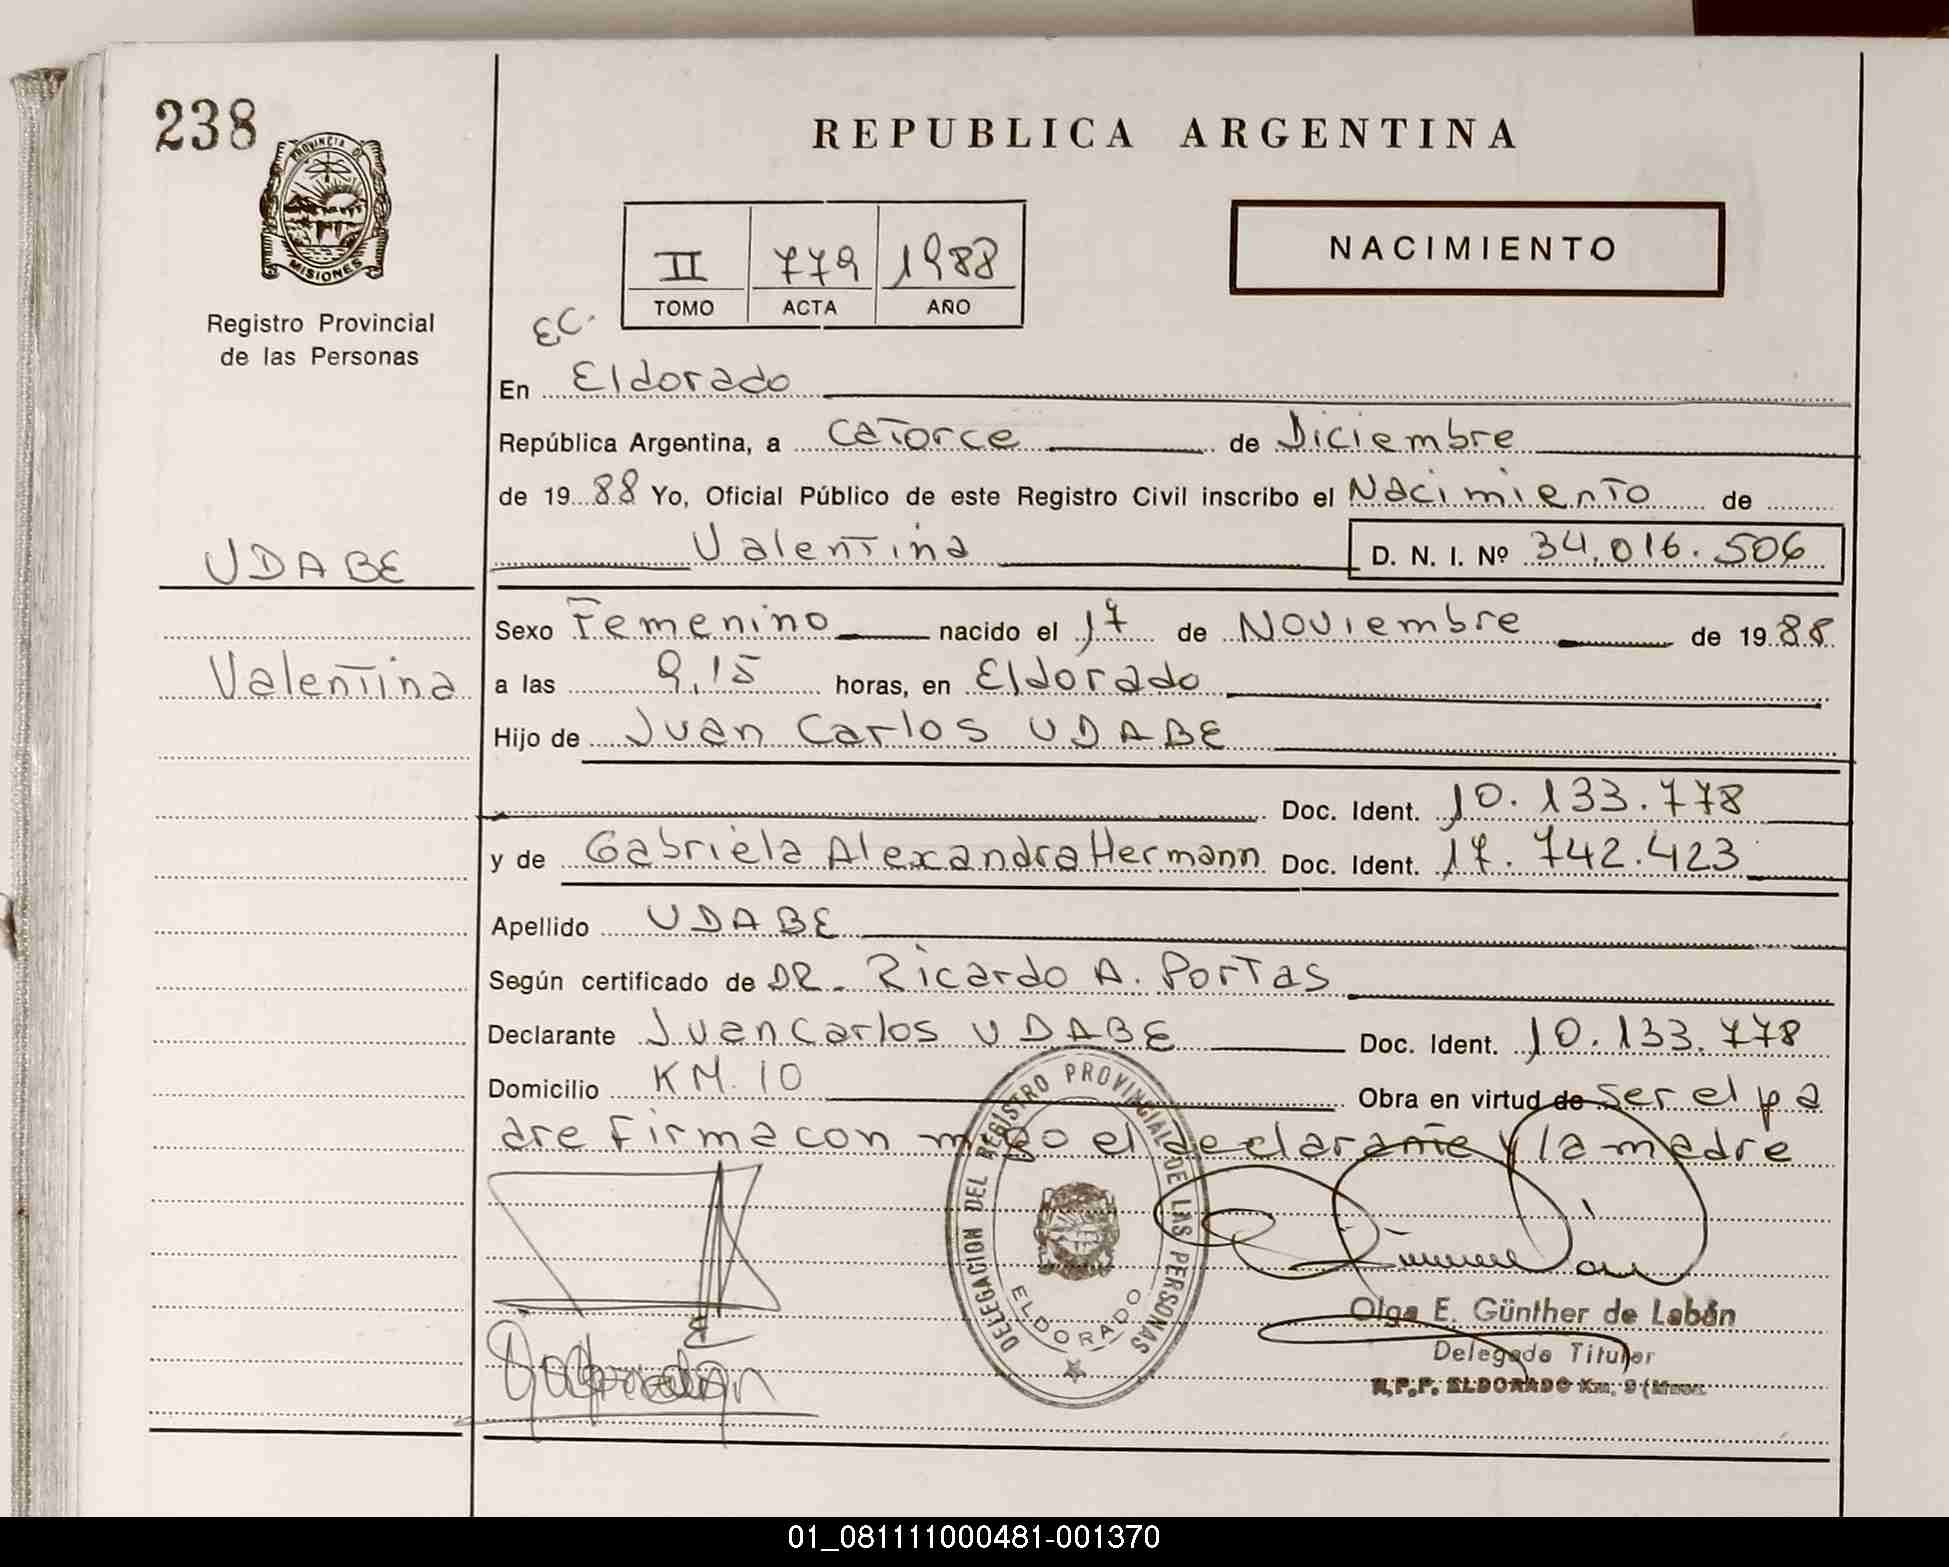 238
REPUBLICA ARGENTINA
PROVINCIA DE
MISIONES
Registro Provincial
de las Personas
II 779 1988
TOMO ACTA AÑO
NACIMIENTO
EC.
En Eldorado
República Argentina, a catorce de Diciembre
de 1988 Yo, Oficial Público de este Registro Civil inscribo el Nacimiento de
Valentina D. N. I. Nº 34.016.506
UDABE
Valentina
Sexo Femenino nacido el 17 de Noviembre de 1988
a las 9,15 horas, en Eldorado
Hijo de Juan Carlos UDABE
Doc. Ident. 10.133.778
y de Gabriela Alexandra Hermann Doc. Ident. 17.742.423
Apellido UDABE
Según certificado de DR. Ricardo A. Portas
Declarante Juan Carlos UDABE Doc. Ident. 10.133.778
Domicilio KM.10 Obra en virtud de ser el pa
dre firma con migo el declarante y la madre
DELEGACION DEL REGISTRO PROVINCIAL DE LAS PERSONAS
ELDORADO
Olga E. Günther de Labán
Delegada Titular
R.P.P. ELDORADO Km. 9 (Mnes.
01_081111000481-001370